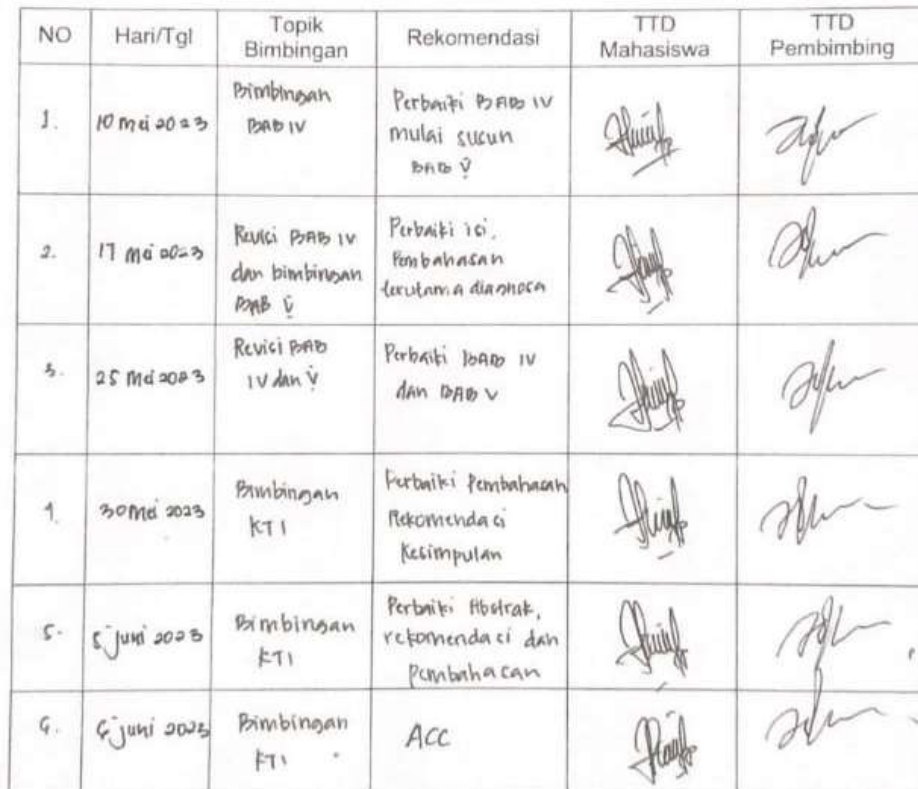 NO
Hari/Tgl
Topik
Bimbingan
Rekomendasi
TTD
Mahasiswa
TTD
Pembimbing
1.
10 Mei 2023
Bimbingan
BAB IV
Perbaiki BAB IV
mulai susun
BAB V
2.
17 Mei 2023
Revisi BAB IV
dan bimbingan
BAB V
Perbaiki isi,
Pembahasan
terutama diagnosa
3.
25 Mei 2023
Revisi BAB
IV dan V
Perbaiki BAB IV
dan BAB V
4.
30 Mei 2023
Bimbingan
KTI
Perbaiki Pembahasan
Rekomendasi
Kesimpulan
5.
5 juni 2023
Bimbingan
KTI
Perbaiki Abstrak,
rekomendasi dan
pembahasan
6.
6 juni 2023
Bimbingan
KTI
ACC